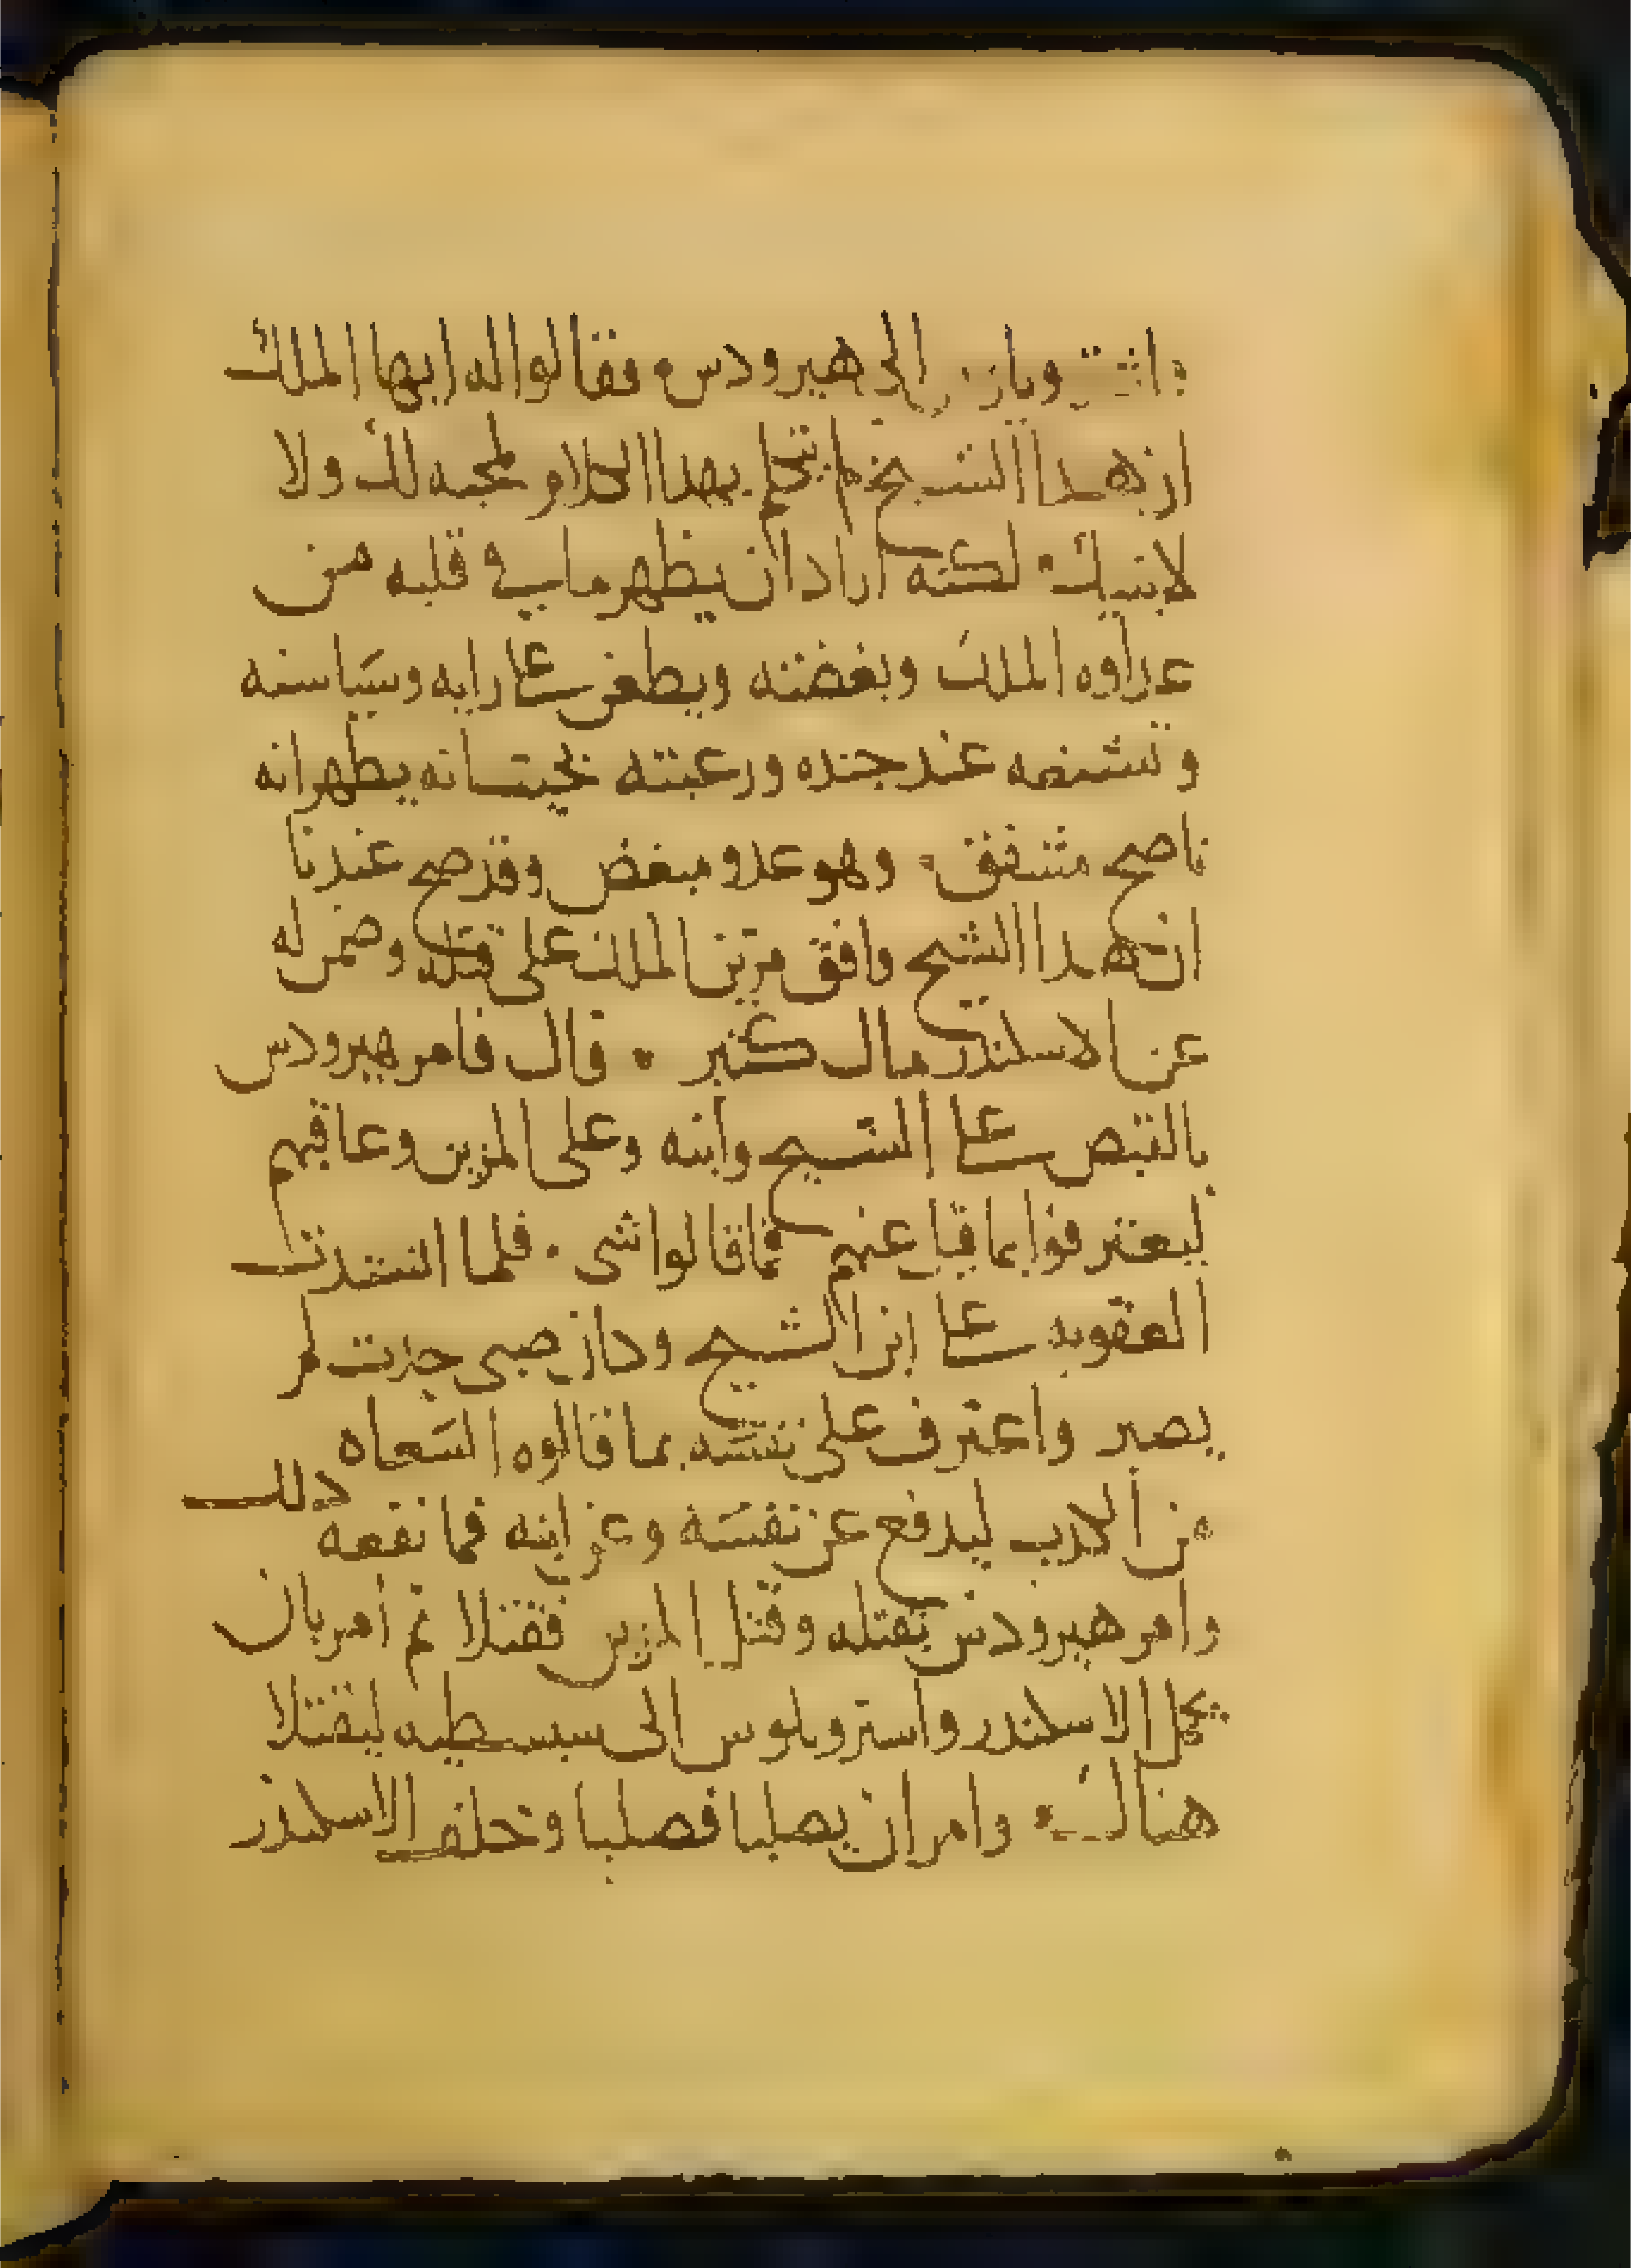 الى هيرودس فقالوا له ايها الملك
ان هدا الشيخ ما تكلم بهدا الكلام لمحبه لك ولا
لابنيك لكنه اراد ان يظهر ما في قلبه من
عداوه الملك وبغضته ويطعن على رايه وسياسته
عند جنده ورعيته يظهر انه
ناصح مشفق وهو عدو مبغض وقد صح عندنا
ان هدا الشيخ وافق مزين الملك على قتله وضمن له
عن الاسكندر مال كثير قال فامر هيرودس
بالقبض على الشيخ وابنه وعلى المزين وعاقبهم
ليعترفوا بما قيل عنهم فما قالوا شى فلما اشتدت
العقوبه على ابن الشيخ وكان صبى حدث لم
يصبر واعترف على نفسه بما قالوه السعاه
من الكدب ليدفع عن نفسه وعن ابيه فما نفعه دلك
وامر هيرودس بقتله وقتل المزين فقتلا ثم امر بان
يحمل الاسكندر واستروبلوس الى سبسطيه ليقتلا
هناك وامر ان يصلبا فصلبا وخلف الاسكندر